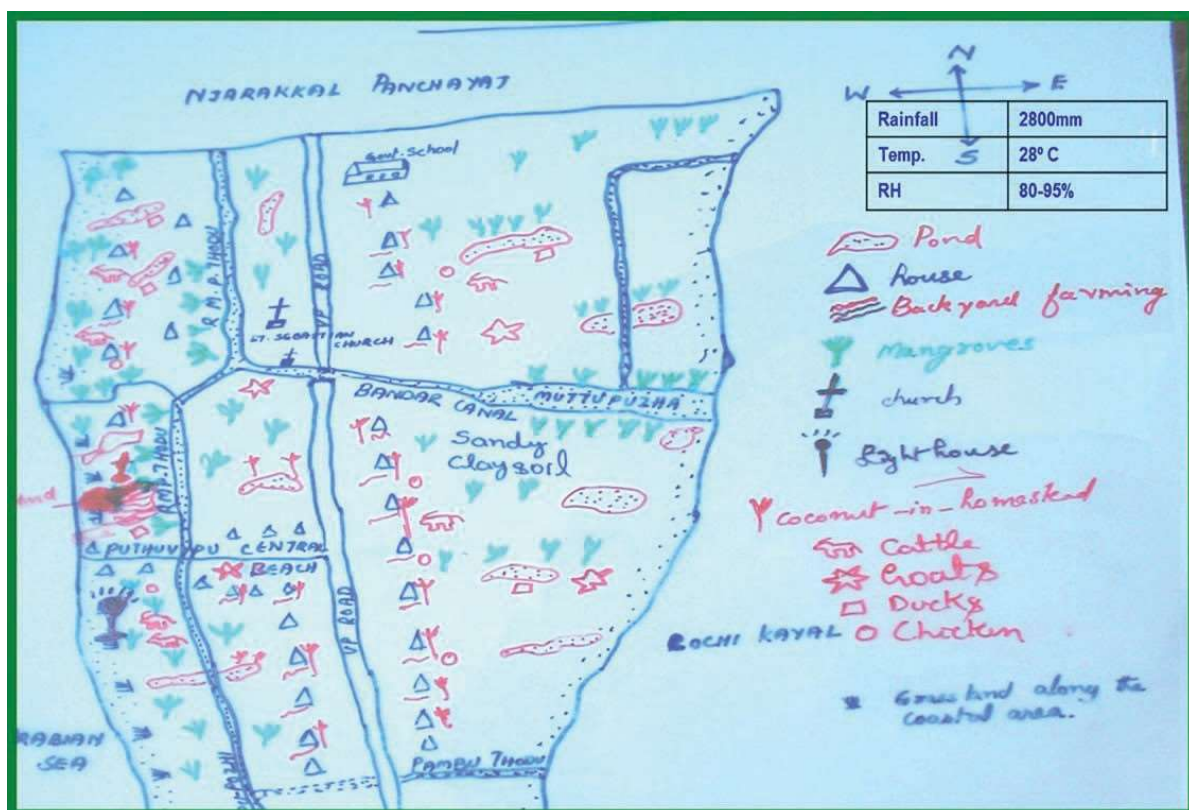 NJARAKKAL PANCHAYAT
N
W E
S
Rainfall 2800mm
Temp. 28º C
RH 80-95%
Govt. School
R.M.P. THODU
VP ROAD
ST. SEBASTIAN
CHURCH
BANDAR CANAL
MUTTUPUZHA
Sandy
Clay soil
RMP. THODU
PUTHUVYPU CENTRAL
BEACH
VP ROAD
PAMBU THODU
RABIAN
SEA
KOCHI KAYAL
Pond
house
Backyard farming
Mangroves
church
Light house
Coconut-in-homestead
Cattle
Goats
Ducks
Chicken
Grassland along the
coastal area.